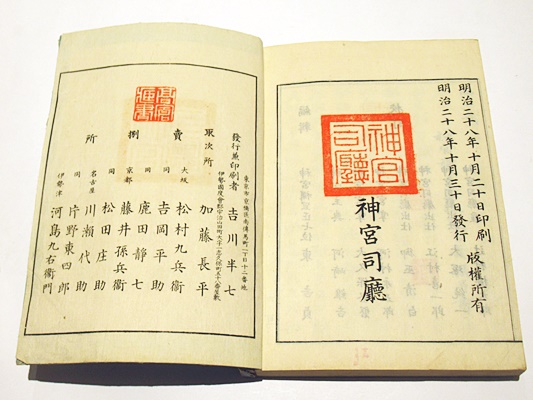 明治二十八年十月二十日印刷
明治二十八年十月三十日發行
版權所有
神宮司廳
神宮司廳
東京市京橋區南傳馬町一丁目十二番地
發行兼印刷者 吉川半七
取次所 加藤長平
賣捌所
大坂 松村九兵衞
同 吉岡平助
同 鹿田靜七
京都 藤井孫兵衞
同 松田庄助
名古屋 川瀬代助
同 片野東四郎
伊勢津 河島九右衞門